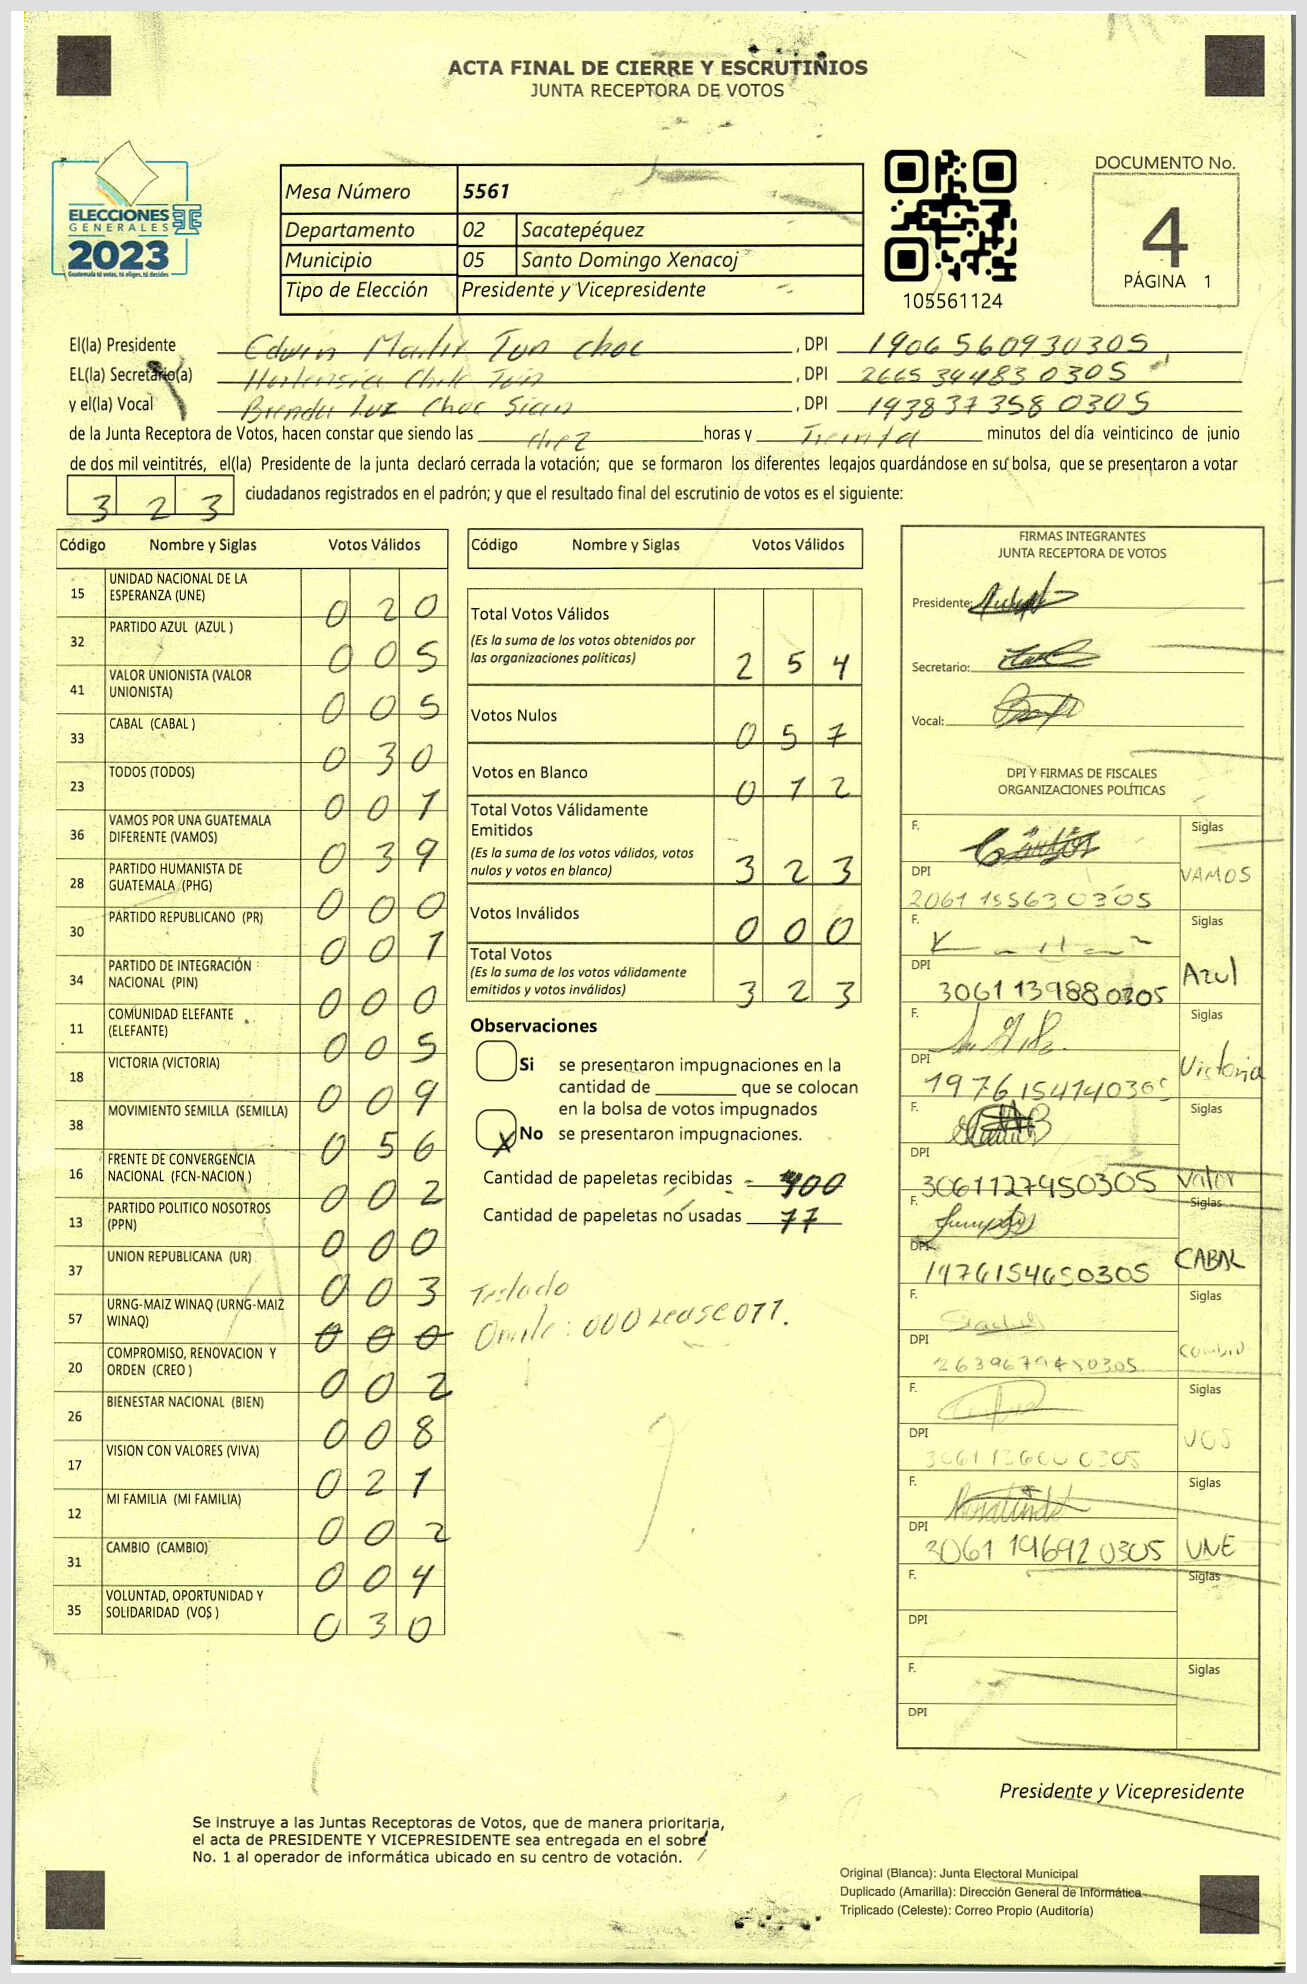 ACTA FINAL DE CIERRE Y ESCRUTINIOS
JUNTA RECEPTORA DE VOTOS
ELECCIONES
GENERALES
2023
Guatemala tú votas, tú eliges, tú decides
Mesa Número 5561
Departamento 02 Sacatepéquez
Municipio 05 Santo Domingo Xenacoj
Tipo de Elección Presidente y Vicepresidente
105561124
DOCUMENTO No.
4
PÁGINA 1
El(la) Presidente Edwin Tun Choc, DPI 1906560930305
EL(la) Secretario(a) Hortensia Tun, DPI 2665344830305
y el(la) Vocal Brenda Luz Choc Sian, DPI 1938373580305
de la Junta Receptora de Votos, hacen constar que siendo las diez horas y Treinta minutos del día veinticinco de junio
de dos mil veintitrés, el(la) Presidente de la junta declaró cerrada la votación; que se formaron los diferentes legajos guardándose en su bolsa, que se presentaron a votar
3 2 3 ciudadanos registrados en el padrón; y que el resultado final del escrutinio de votos es el siguiente:
Código Nombre y Siglas Votos Válidos
15 UNIDAD NACIONAL DE LA ESPERANZA (UNE) 0 2 0
32 PARTIDO AZUL (AZUL ) 0 0 5
41 VALOR UNIONISTA (VALOR UNIONISTA) 0 0 5
33 CABAL (CABAL ) 0 3 0
23 TODOS (TODOS) 0 0 1
36 VAMOS POR UNA GUATEMALA DIFERENTE (VAMOS) 0 3 9
28 PARTIDO HUMANISTA DE GUATEMALA (PHG) 0 0 0
30 PARTIDO REPUBLICANO (PR) 0 0 1
34 PARTIDO DE INTEGRACIÓN NACIONAL (PIN) 0 0 0
11 COMUNIDAD ELEFANTE (ELEFANTE) 0 0 5
18 VICTORIA (VICTORIA) 0 0 9
38 MOVIMIENTO SEMILLA (SEMILLA) 0 5 6
16 FRENTE DE CONVERGENCIA NACIONAL (FCN-NACION ) 0 0 2
13 PARTIDO POLITICO NOSOTROS (PPN) 0 0 0
37 UNION REPUBLICANA (UR) 0 0 3
57 URNG-MAIZ WINAQ (URNG-MAIZ WINAQ) 0 0 0
20 COMPROMISO, RENOVACION Y ORDEN (CREO ) 0 0 2
26 BIENESTAR NACIONAL (BIEN) 0 0 8
17 VISION CON VALORES (VIVA) 0 2 1
12 MI FAMILIA (MI FAMILIA) 0 0 2
31 CAMBIO (CAMBIO) 0 0 4
35 VOLUNTAD, OPORTUNIDAD Y SOLIDARIDAD (VOS ) 0 3 0
Código Nombre y Siglas Votos Válidos
Total Votos Válidos 2 5 4
(Es la suma de los votos obtenidos por
las organizaciones políticas)
Votos Nulos 0 5 7
Votos en Blanco 0 1 2
Total Votos Válidamente
Emitidos
(Es la suma de los votos válidos, votos
nulos y votos en blanco) 3 2 3
Votos Inválidos 0 0 0
Total Votos
(Es la suma de los votos válidamente
emitidos y votos inválidos) 3 2 3
Observaciones
Si se presentaron impugnaciones en la
cantidad de ________ que se colocan
en la bolsa de votos impugnados
X No se presentaron impugnaciones.
Cantidad de papeletas recibidas 400
Cantidad de papeletas no usadas 77
FIRMAS INTEGRANTES
JUNTA RECEPTORA DE VOTOS
Presidente:
Secretario:
Vocal:
DPI Y FIRMAS DE FISCALES
ORGANIZACIONES POLÍTICAS
F. Siglas VAMOS
DPI 2061 155630305
F. Siglas Azul
DPI 3061 139880305
F. Siglas Victoria
DPI 1976154140305
F. Siglas Valor
DPI 3061127450305
F. Siglas CABAL
DPI 1976154650305
F. Siglas Cambio
DPI 2639679450305
F. Siglas VOS
DPI
F. Siglas UNE
DPI 3061 196920305
F. Siglas
DPI
F. Siglas
DPI
Presidente y Vicepresidente
Se instruye a las Juntas Receptoras de Votos, que de manera prioritaria,
el acta de PRESIDENTE Y VICEPRESIDENTE sea entregada en el sobre
No. 1 al operador de informática ubicado en su centro de votación.
Original (Blanca): Junta Electoral Municipal
Duplicado (Amarilla): Dirección General de Informática
Triplicado (Celeste): Correo Propio (Auditoría)